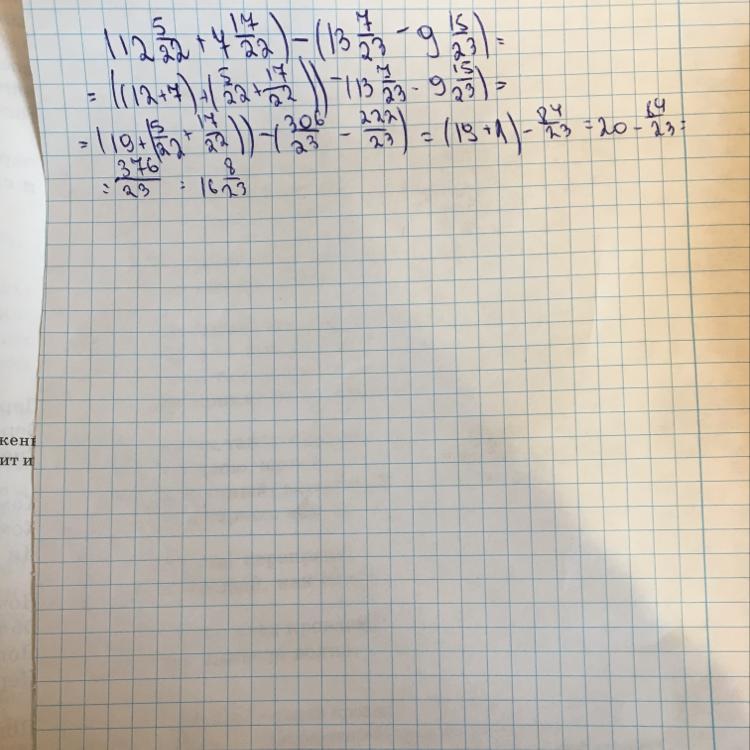 (12 5/22 + 7 17/22) - (13 7/23 - 9 15/23) =
= ((12+7) + (5/22 + 17/22)) - (13 7/23 - 9 15/23) =
= (19 + (5/22 + 17/22)) - (306/23 - 222/23) = (19+1) - 84/23 = 20 - 84/23 =
= 376/23 = 16 8/23
жени
ит и